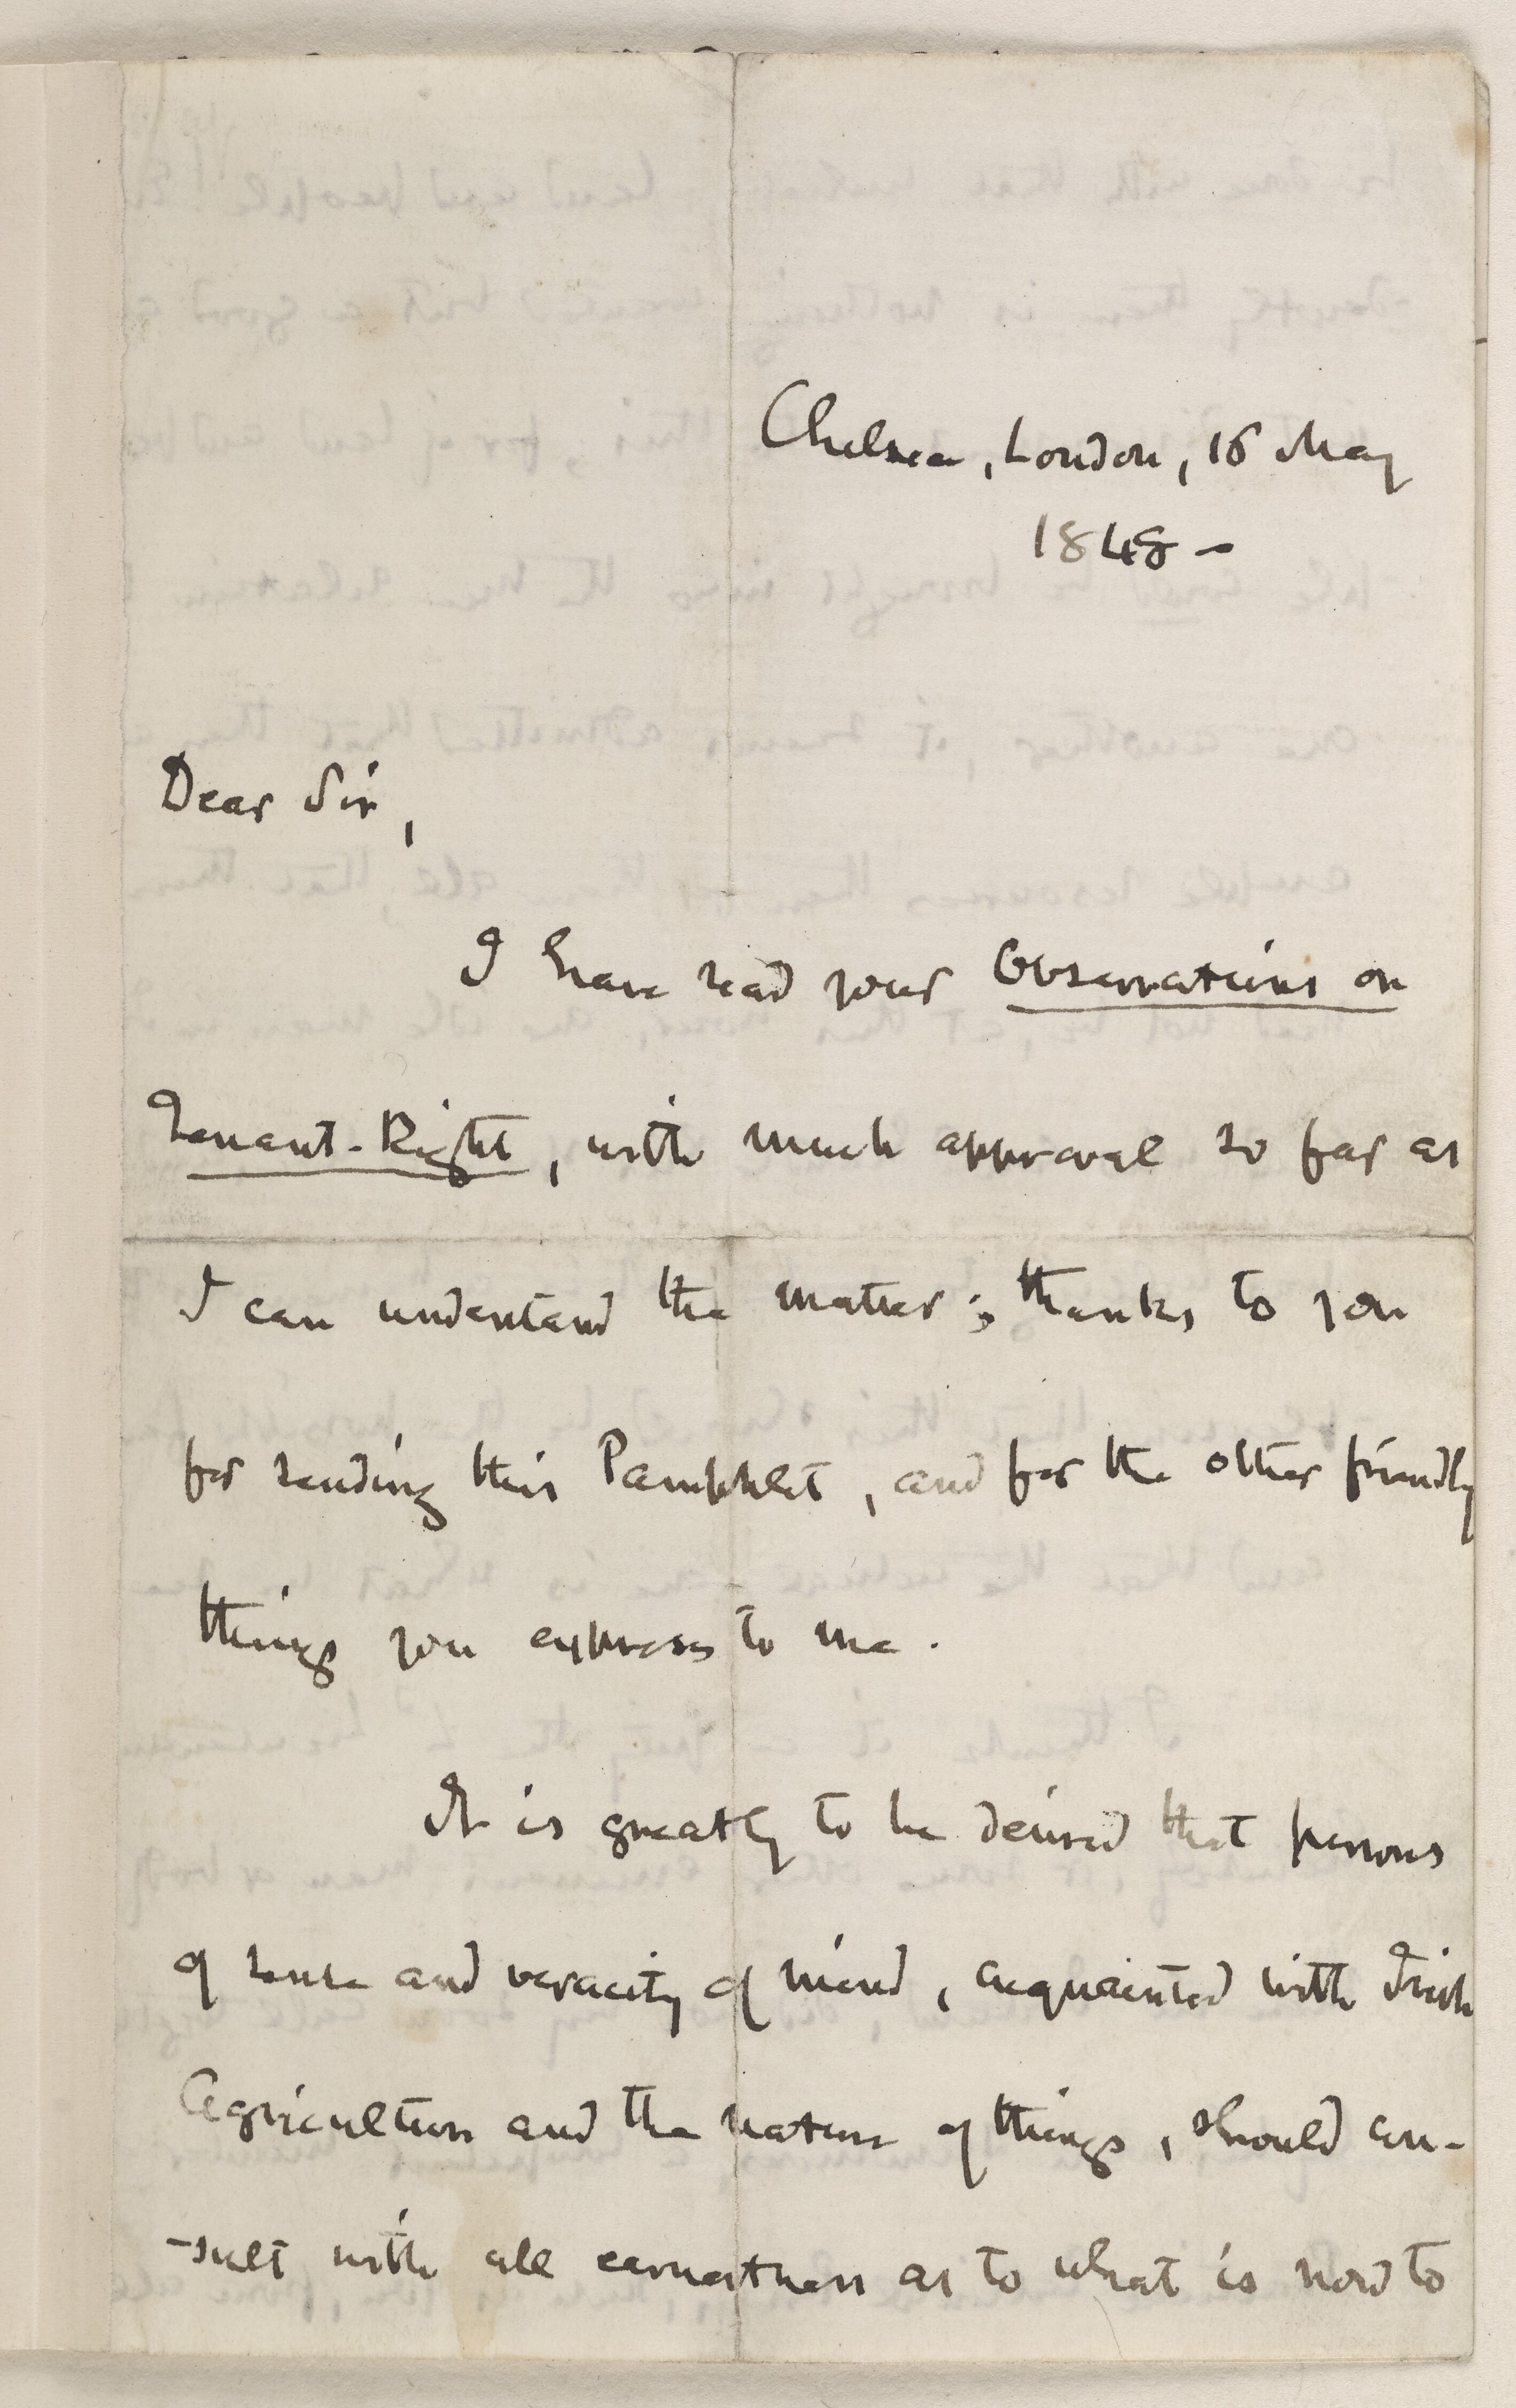 Chelsea, London, 16 May
1848 –
Dear Sir,
I have read your Observations on
Tenant-Right, with much approval so far as
I can understand the matter; thanks to you
for sending this Pamphlet, and for the other friendly
things you express to me.
It is greatly to be desired that persons
of sense and veracity of mind, acquainted with Irish
Agriculture and the nature of things, should con-
-sult with all earnestness as to what is now to